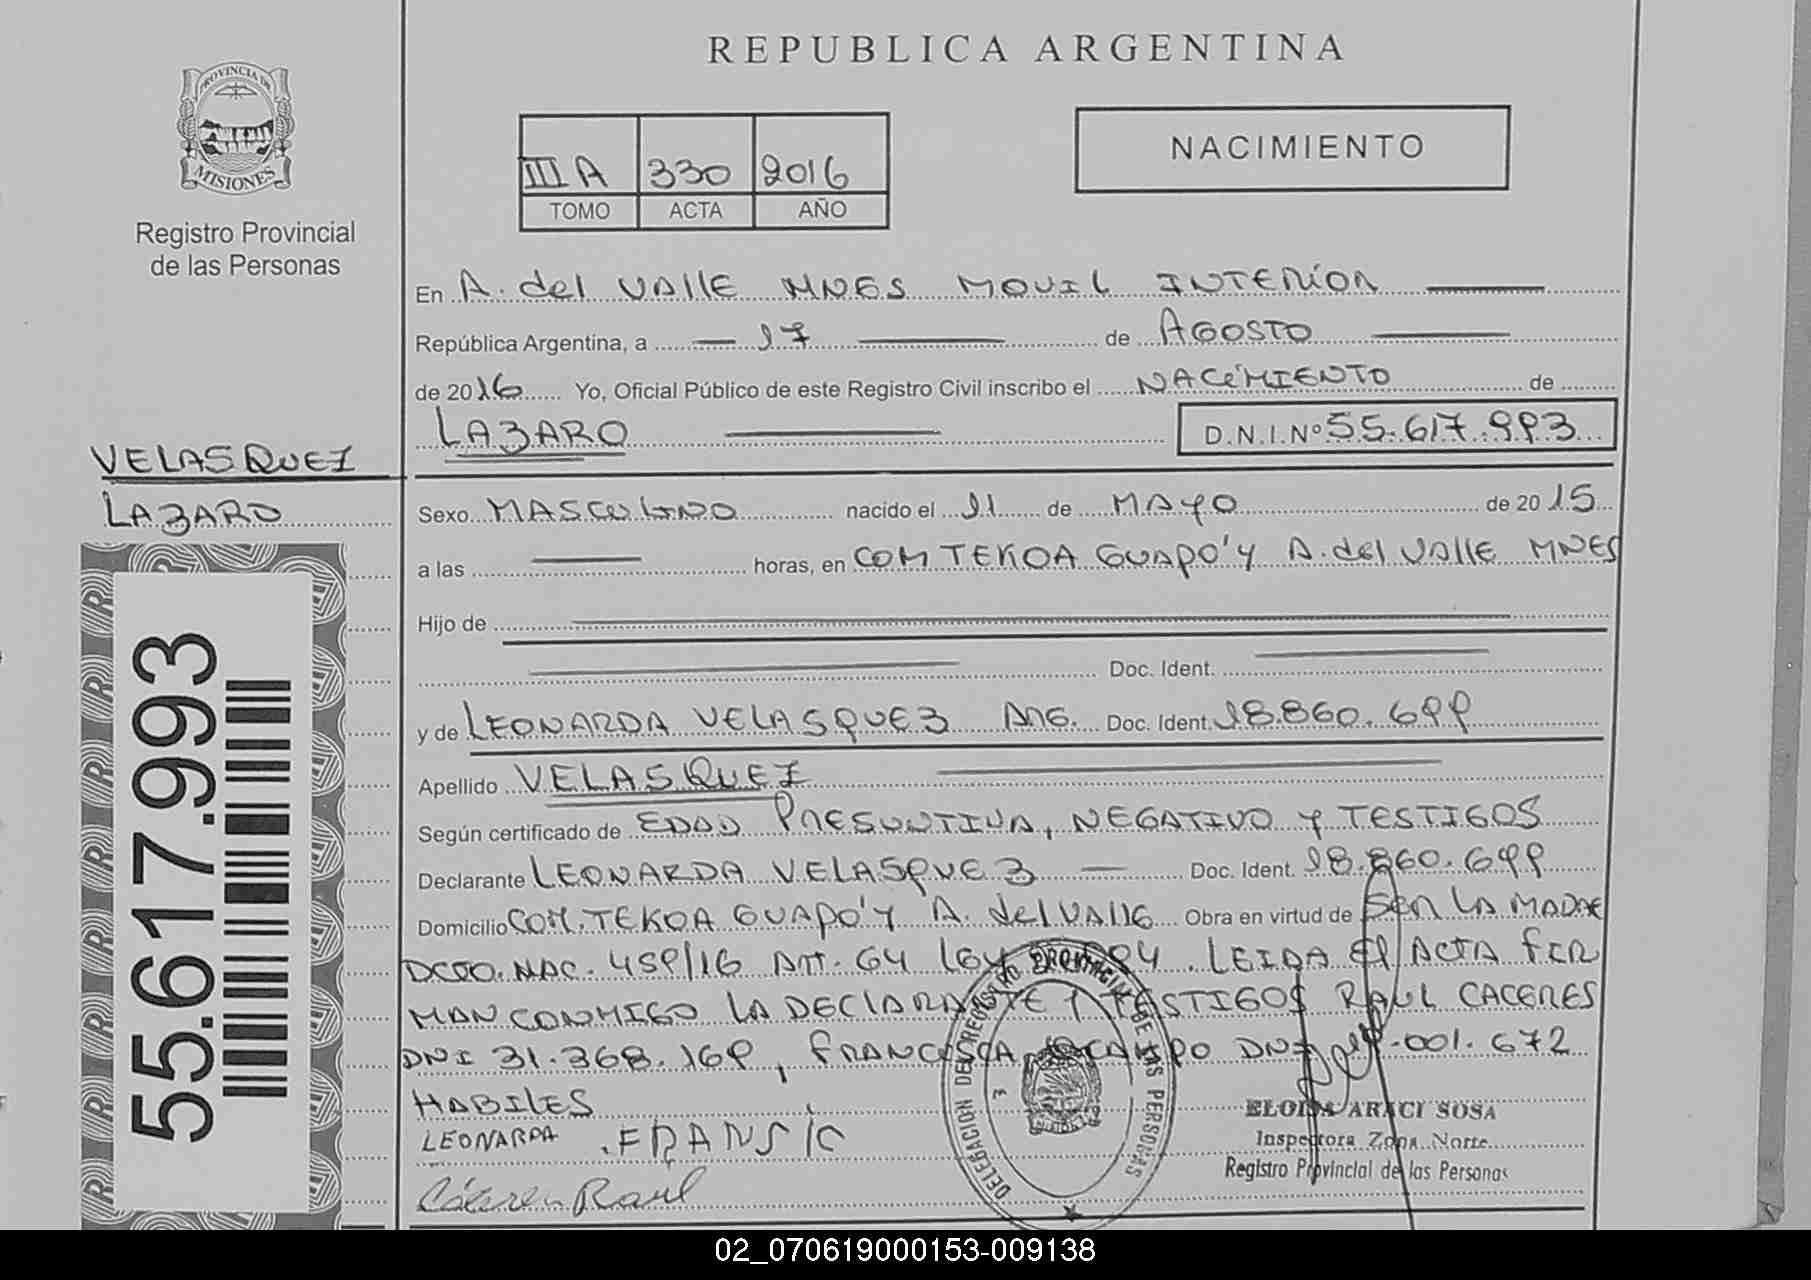 REPUBLICA ARGENTINA
PROVINCIA DE
MISIONES
Registro Provincial
de las Personas
III A 330 2016
TOMO ACTA AÑO
NACIMIENTO
En A. del VALLE MNES MOVIL INTERIOR
República Argentina, a 17 de AGOSTO
de 2016 Yo, Oficial Público de este Registro Civil inscribo el NACIMIENTO de
LAZARO D.N.I.Nº 55.617.993
VELASQUEZ
LAZARO
Sexo MASCULINO nacido el 11 de MAYO de 2015
a las horas, en COM TEKOA GUAPO'Y A. del VALLE MNES
Hijo de
Doc. Ident.
y de LEONARDA VELASQUEZ ARG. Doc. Ident. 18.860.699
Apellido VELASQUEZ
Según certificado de EDAD PRESUNTIVA, NEGATIVO Y TESTIGOS
Declarante LEONARDA VELASQUEZ Doc. Ident. 18.860.699
Domicilio COM. TEKOA GUAPO'Y A. del VALLE Obra en virtud de SER LA MADRE
DCTO. NAC. 459/16 Art. 64 LEY 04. LEIDA El ACTA FIR
MAN CONMIGO LA DECLARANTE Y TESTIGOS RAUL CACERES
DNI 31.368.169, FRANCISCA OCAMPO DNI 19.001.672
HABILES
LEONARDA . FRANSIC
Cáceren Raul
DELEGACION DEL REGISTRO PROVINCIAL DE LAS PERSONAS
ELOISA ARACI SOSA
Inspectora Zona Norte
Registro Provincial de las Personas
55.617.993
02_070619000153-009138